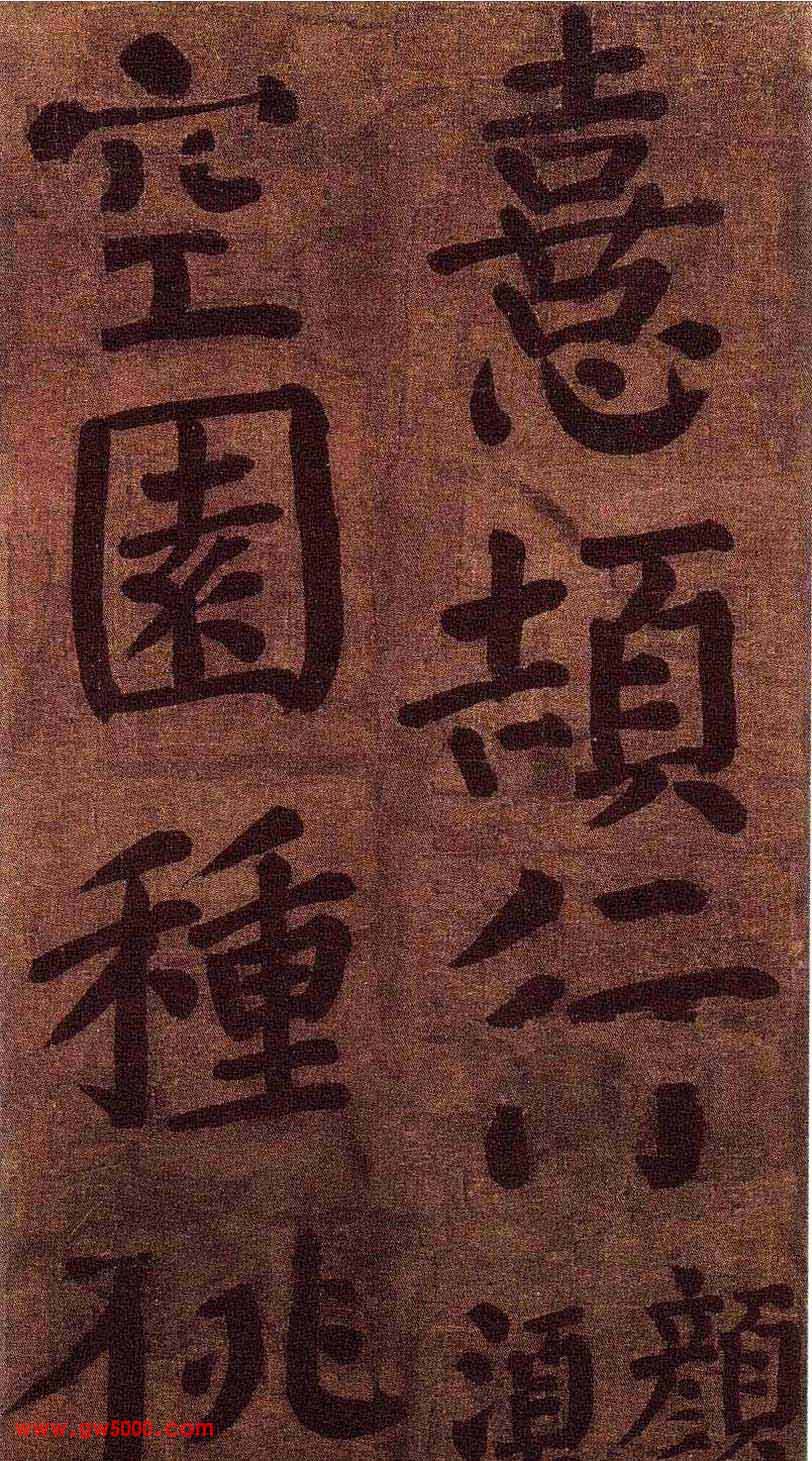 憙頡行
顏
空園種桃
www.gw5000.com